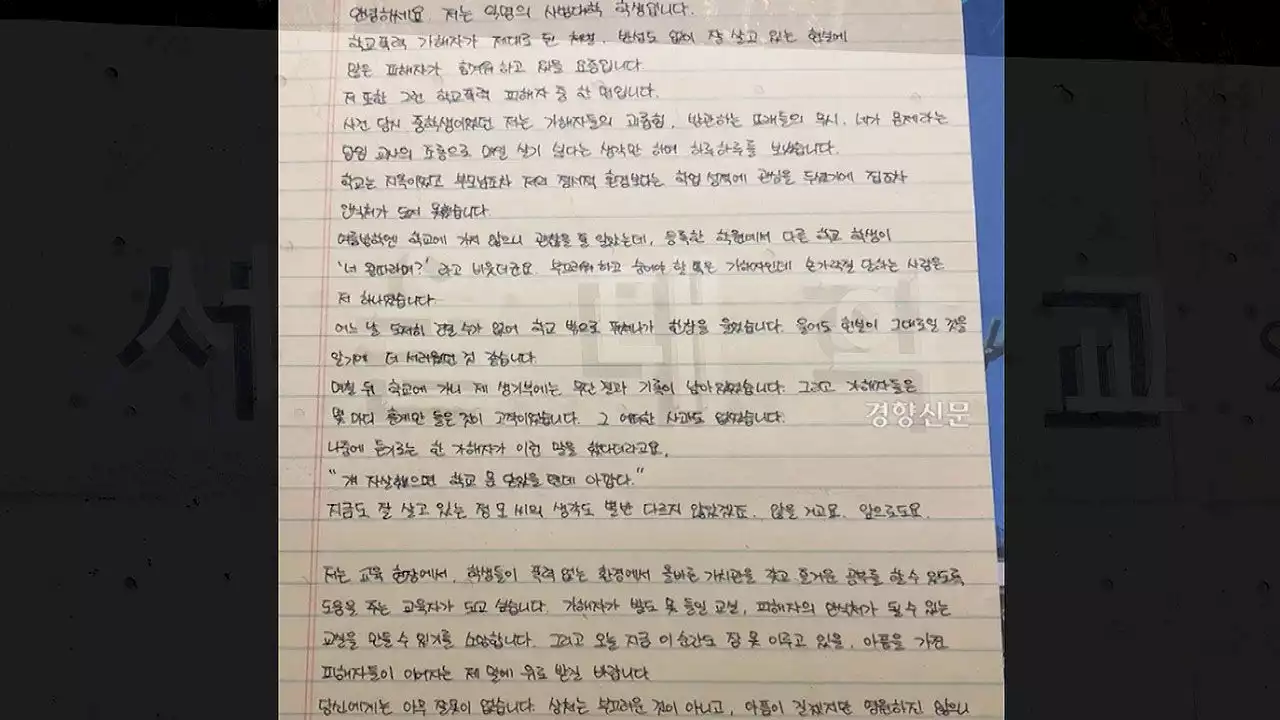 안녕하세요. 저는 익명의 사범대학 학생입니다.
학교폭력 가해자가 제대로 된 처벌, 반성도 없이 잘 살고 있는 현실에
많은 피해자가 힘겨워하고 있을 요즘입니다.
저 또한 그런 학교폭력 피해자 중 한 명입니다.
사건 당시 중학생이었던 저는 가해자들의 괴롭힘, 방관하는 또래들의 무시, 네가 문제라는
담임 교사의 조롱으로 매일 살기 싫다는 생각만 하며 하루하루를 보냈습니다.
학교는 지옥이었고 부모님조차 저의 정서적 환경보다는 학업 성적에 관심을 두셨기에 집조차
안식처가 되지 못했습니다.
여름방학엔 학교에 가지 않으니 괜찮을 줄 알았는데, 등록한 학원에서 다른 학교 학생이
'너 왕따라며?' 라고 비웃더군요. 부끄러워하고 숨어야 할 쪽은 가해자인데 손가락질 당하는 사람은
저 하나였습니다.
어느 날 도저히 견딜 수가 없어 학교 밖으로 뛰쳐나가 한참을 울었습니다. 울어도 현실이 그대로일 것을
알기에 더 서러웠던 것 같습니다.
며칠 뒤 학교에 가니 제 생기부에는 무단결과 기록이 남아있었습니다. 그리고 가해자들은
몇 마디 훈계만 들은 것이 고작이었습니다. 그 어떠한 사과도 없었습니다.
나중에 듣기로는 한 가해자가 이런 말을 했다더라고요.
"걔 자살했으면 학교 문 닫았을 텐데 아깝다."
지금도 잘 살고 있는 정모 씨의 생각도 별반 다르지 않았겠죠. 않을 거고요. 앞으로도요.
저는 교육 현장에서, 학생들이 폭력 없는 환경에서 올바른 가치관을 갖고 즐거운 공부를 할 수 있도록
도움을 주는 교육자가 되고 싶습니다. 가해자가 발도 못 들일 교실, 피해자의 안식처가 될 수 있는
교실을 만들 수 있기를 소망합니다. 그리고 오늘 지금 이 순간도 잠 못 이루고 있을, 아픔을 가진
피해자들이 이어지는 제 말에 위로 받길 바랍니다
당신에게는 아무 잘못이 없습니다. 상처는 부끄러운 것이 아니고, 아픔이 길겠지만 영원하진 않으니
경향신문